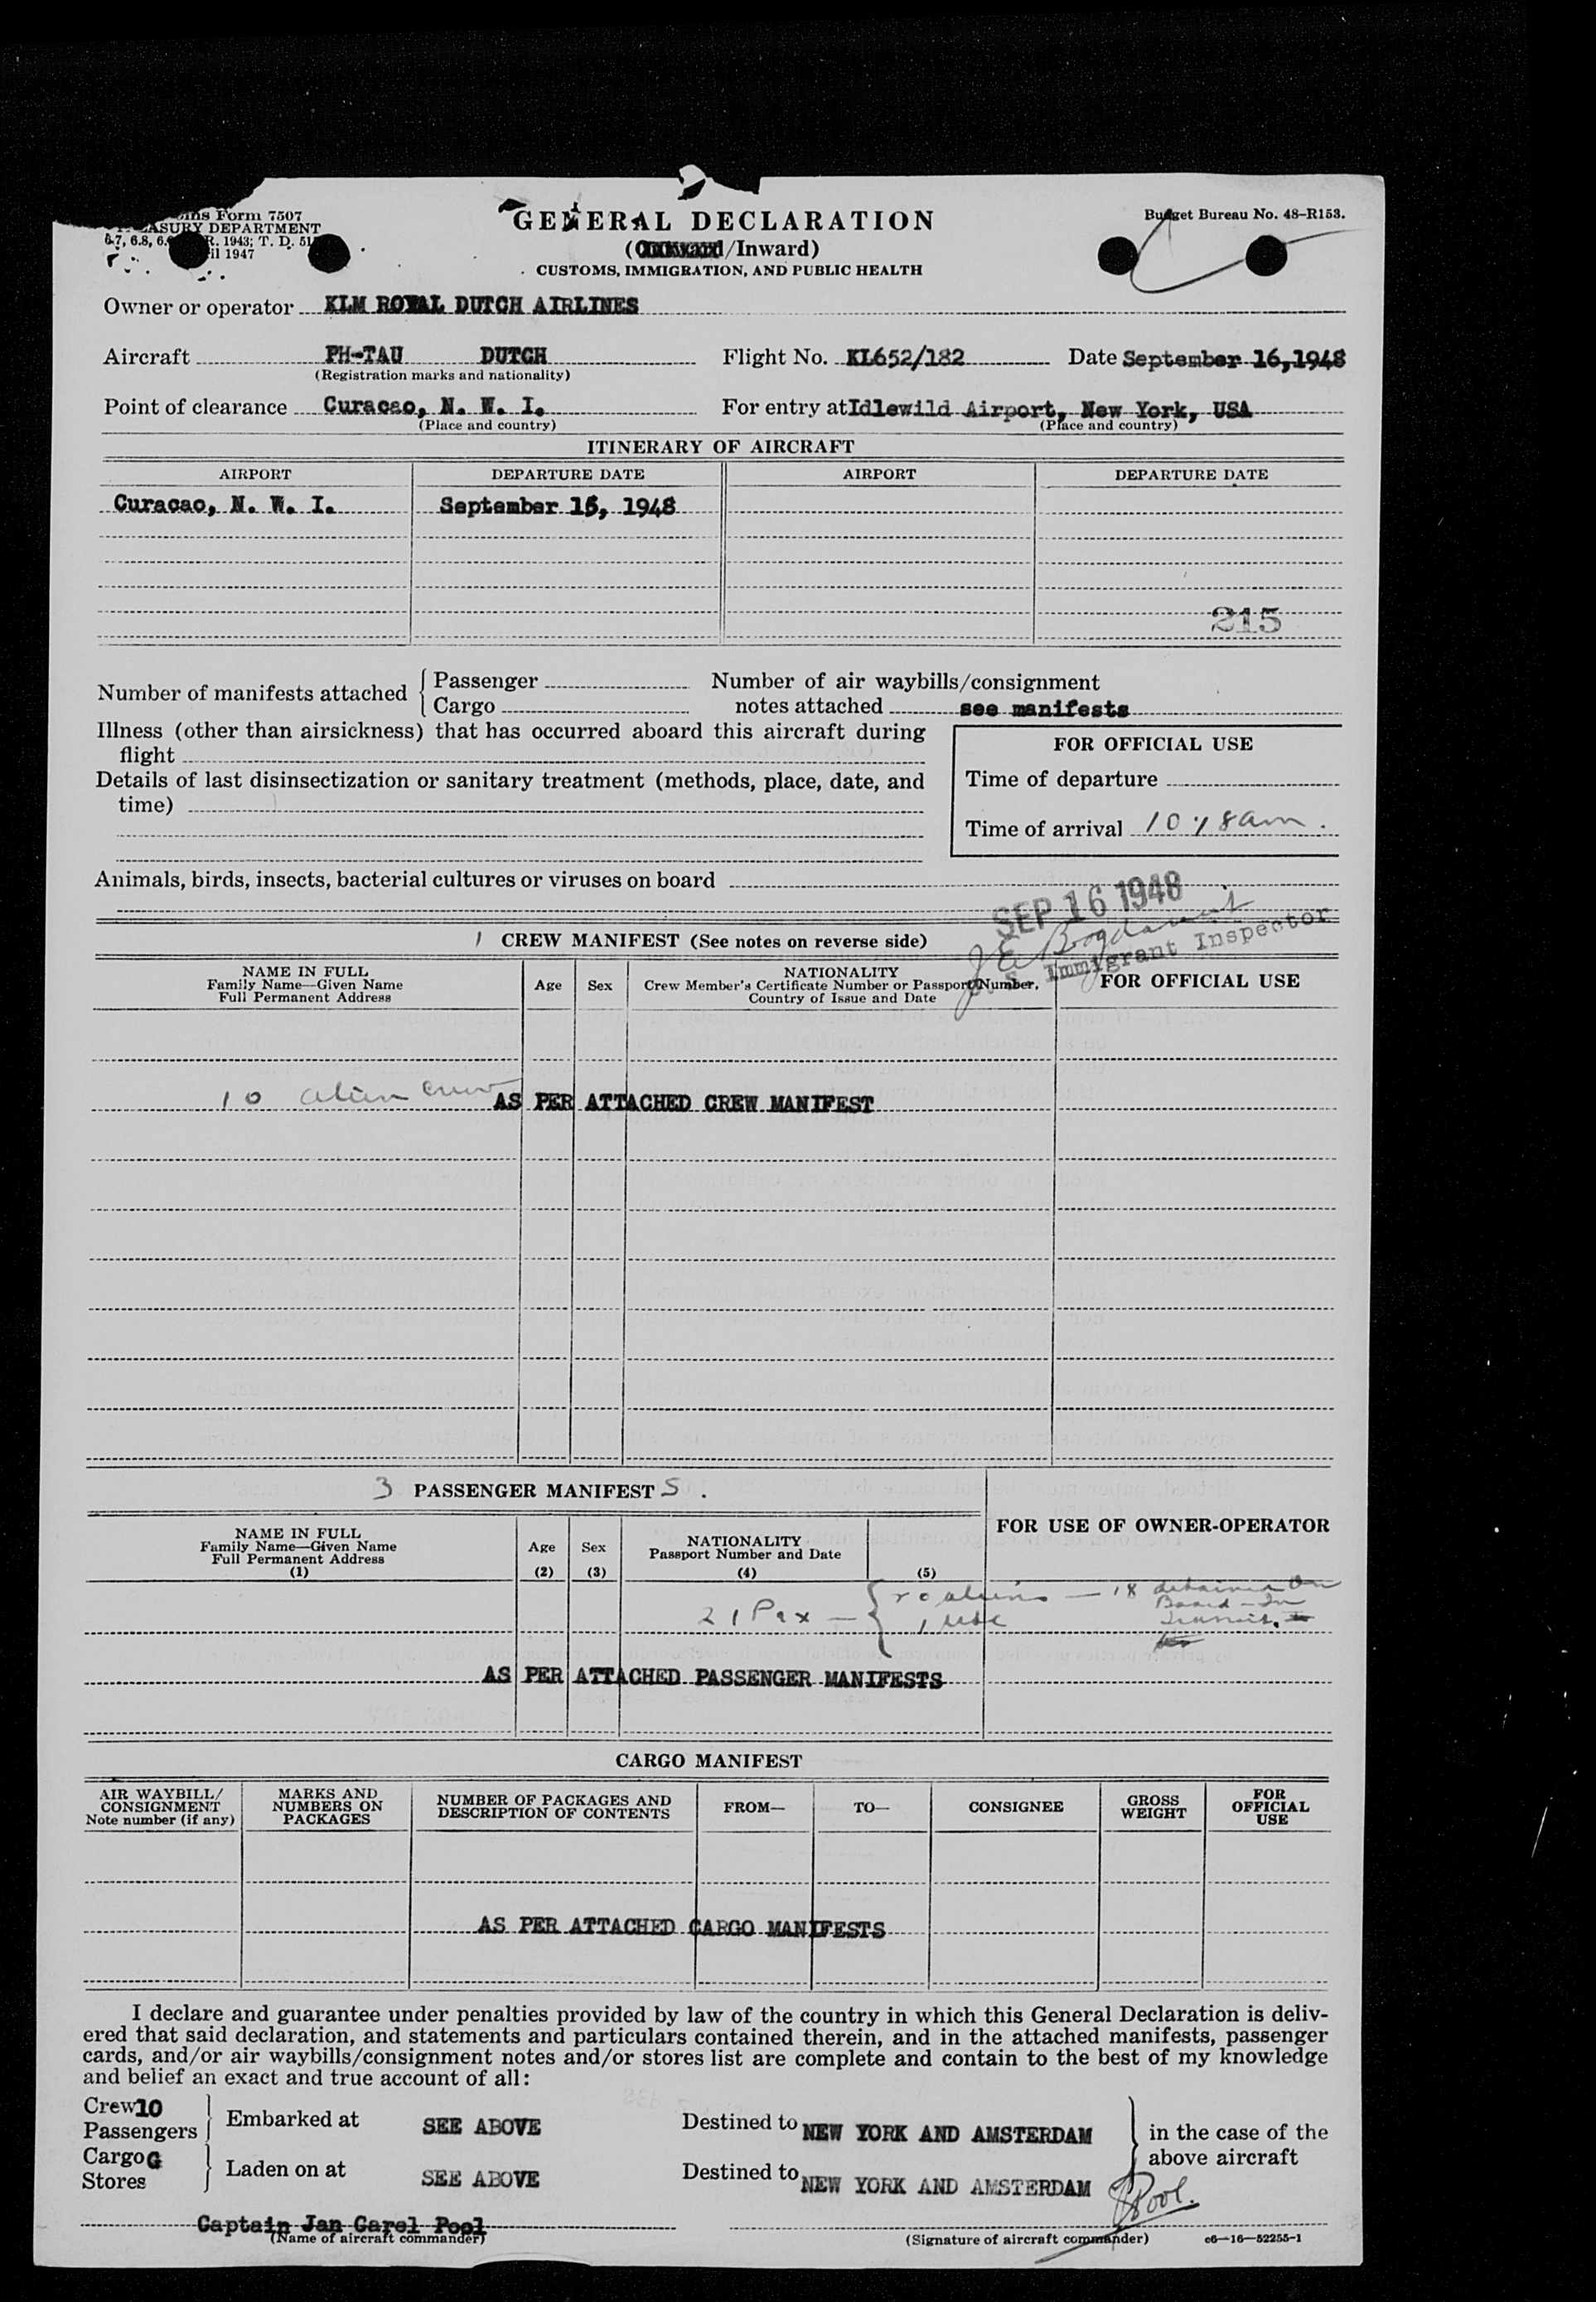 ms Form 7507
TREASURY DEPARTMENT
6.7, 6.8, 6. R. 1943; T. D. 51
il 1947
GENERAL DECLARATION
(/Inward)
CUSTOMS, IMMIGRATION, AND PUBLIC HEALTH
Budget Bureau No. 48–R153.
Owner or operator KLM ROYAL DUTCH AIRLINES
Aircraft PH-TAU DUTCH Flight No. KL652/182 Date September 16, 1948
(Registration marks and nationality)
Point of clearance Curacao, N. W. I. For entry at Idlewild Airport, New York, USA
(Place and country) (Place and country)
ITINERARY OF AIRCRAFT
AIRPORT DEPARTURE DATE AIRPORT DEPARTURE DATE
Curacao, N. W. I. September 15, 1948
215
Number of manifests attached { Passenger Number of air waybills/consignment
Cargo notes attached see manifests
Illness (other than airsickness) that has occurred aboard this aircraft during
flight
Details of last disinsectization or sanitary treatment (methods, place, date, and
time)
FOR OFFICIAL USE
Time of departure
Time of arrival 10:18 am.
Animals, birds, insects, bacterial cultures or viruses on board
SEP 16 1948
S. Immigrant Inspector
1 CREW MANIFEST (See notes on reverse side)
NAME IN FULL
Family Name—Given Name
Full Permanent Address
Age Sex
NATIONALITY
Crew Member's Certificate Number or Passport Number,
Country of Issue and Date
FOR OFFICIAL USE
10 alien crew AS PER ATTACHED CREW MANIFEST
3 PASSENGER MANIFEST S.
NAME IN FULL
Family Name—Given Name
Full Permanent Address
(1)
Age
(2)
Sex
(3)
NATIONALITY
Passport Number and Date
(4)
(5)
FOR USE OF OWNER-OPERATOR
21 Pax — { 20 aliens — 18 detained On
1 USC Board – In
Transit.
AS PER ATTACHED PASSENGER MANIFESTS
CARGO MANIFEST
AIR WAYBILL/
CONSIGNMENT
Note number (if any)
MARKS AND
NUMBERS ON
PACKAGES
NUMBER OF PACKAGES AND
DESCRIPTION OF CONTENTS
FROM— TO— CONSIGNEE
GROSS
WEIGHT
FOR
OFFICIAL
USE
AS PER ATTACHED CARGO MANIFESTS
I declare and guarantee under penalties provided by law of the country in which this General Declaration is deliv-
ered that said declaration, and statements and particulars contained therein, and in the attached manifests, passenger
cards, and/or air waybills/consignment notes and/or stores list are complete and contain to the best of my knowledge
and belief an exact and true account of all:
Crew 10
Passengers } Embarked at SEE ABOVE Destined to NEW YORK AND AMSTERDAM } in the case of the
Cargo G
Stores } Laden on at SEE ABOVE Destined to NEW YORK AND AMSTERDAM above aircraft
JPool.
Captain Jan Carel Pool
(Name of aircraft commander) (Signature of aircraft commander) c6—16—52255-1